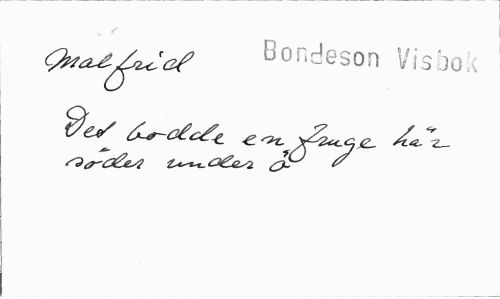 Malfrid
Bondeson Visbok
Det bodde en fruge här
söder under å